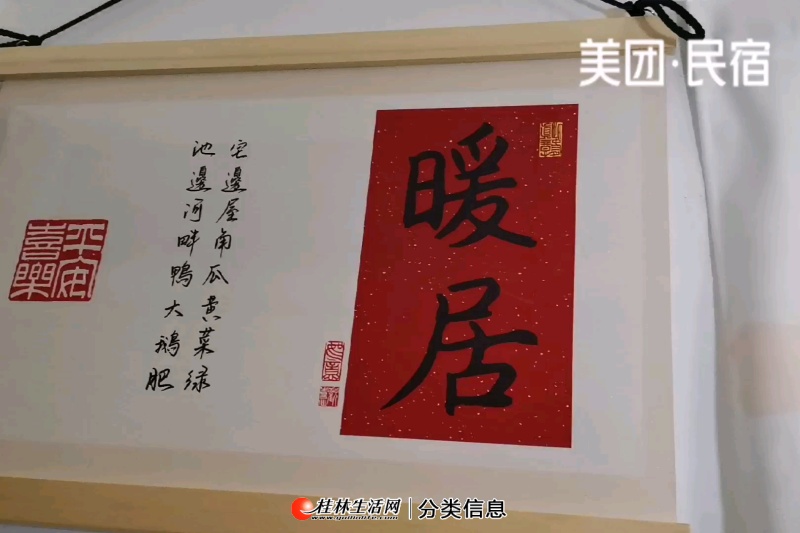 美团·民宿
暖居
宅邊屋角瓜黄菜绿
池邊河畔鴨大鵝肥
平安喜樂
如意
桂林生活网
www.guilinlife.com
分类信息